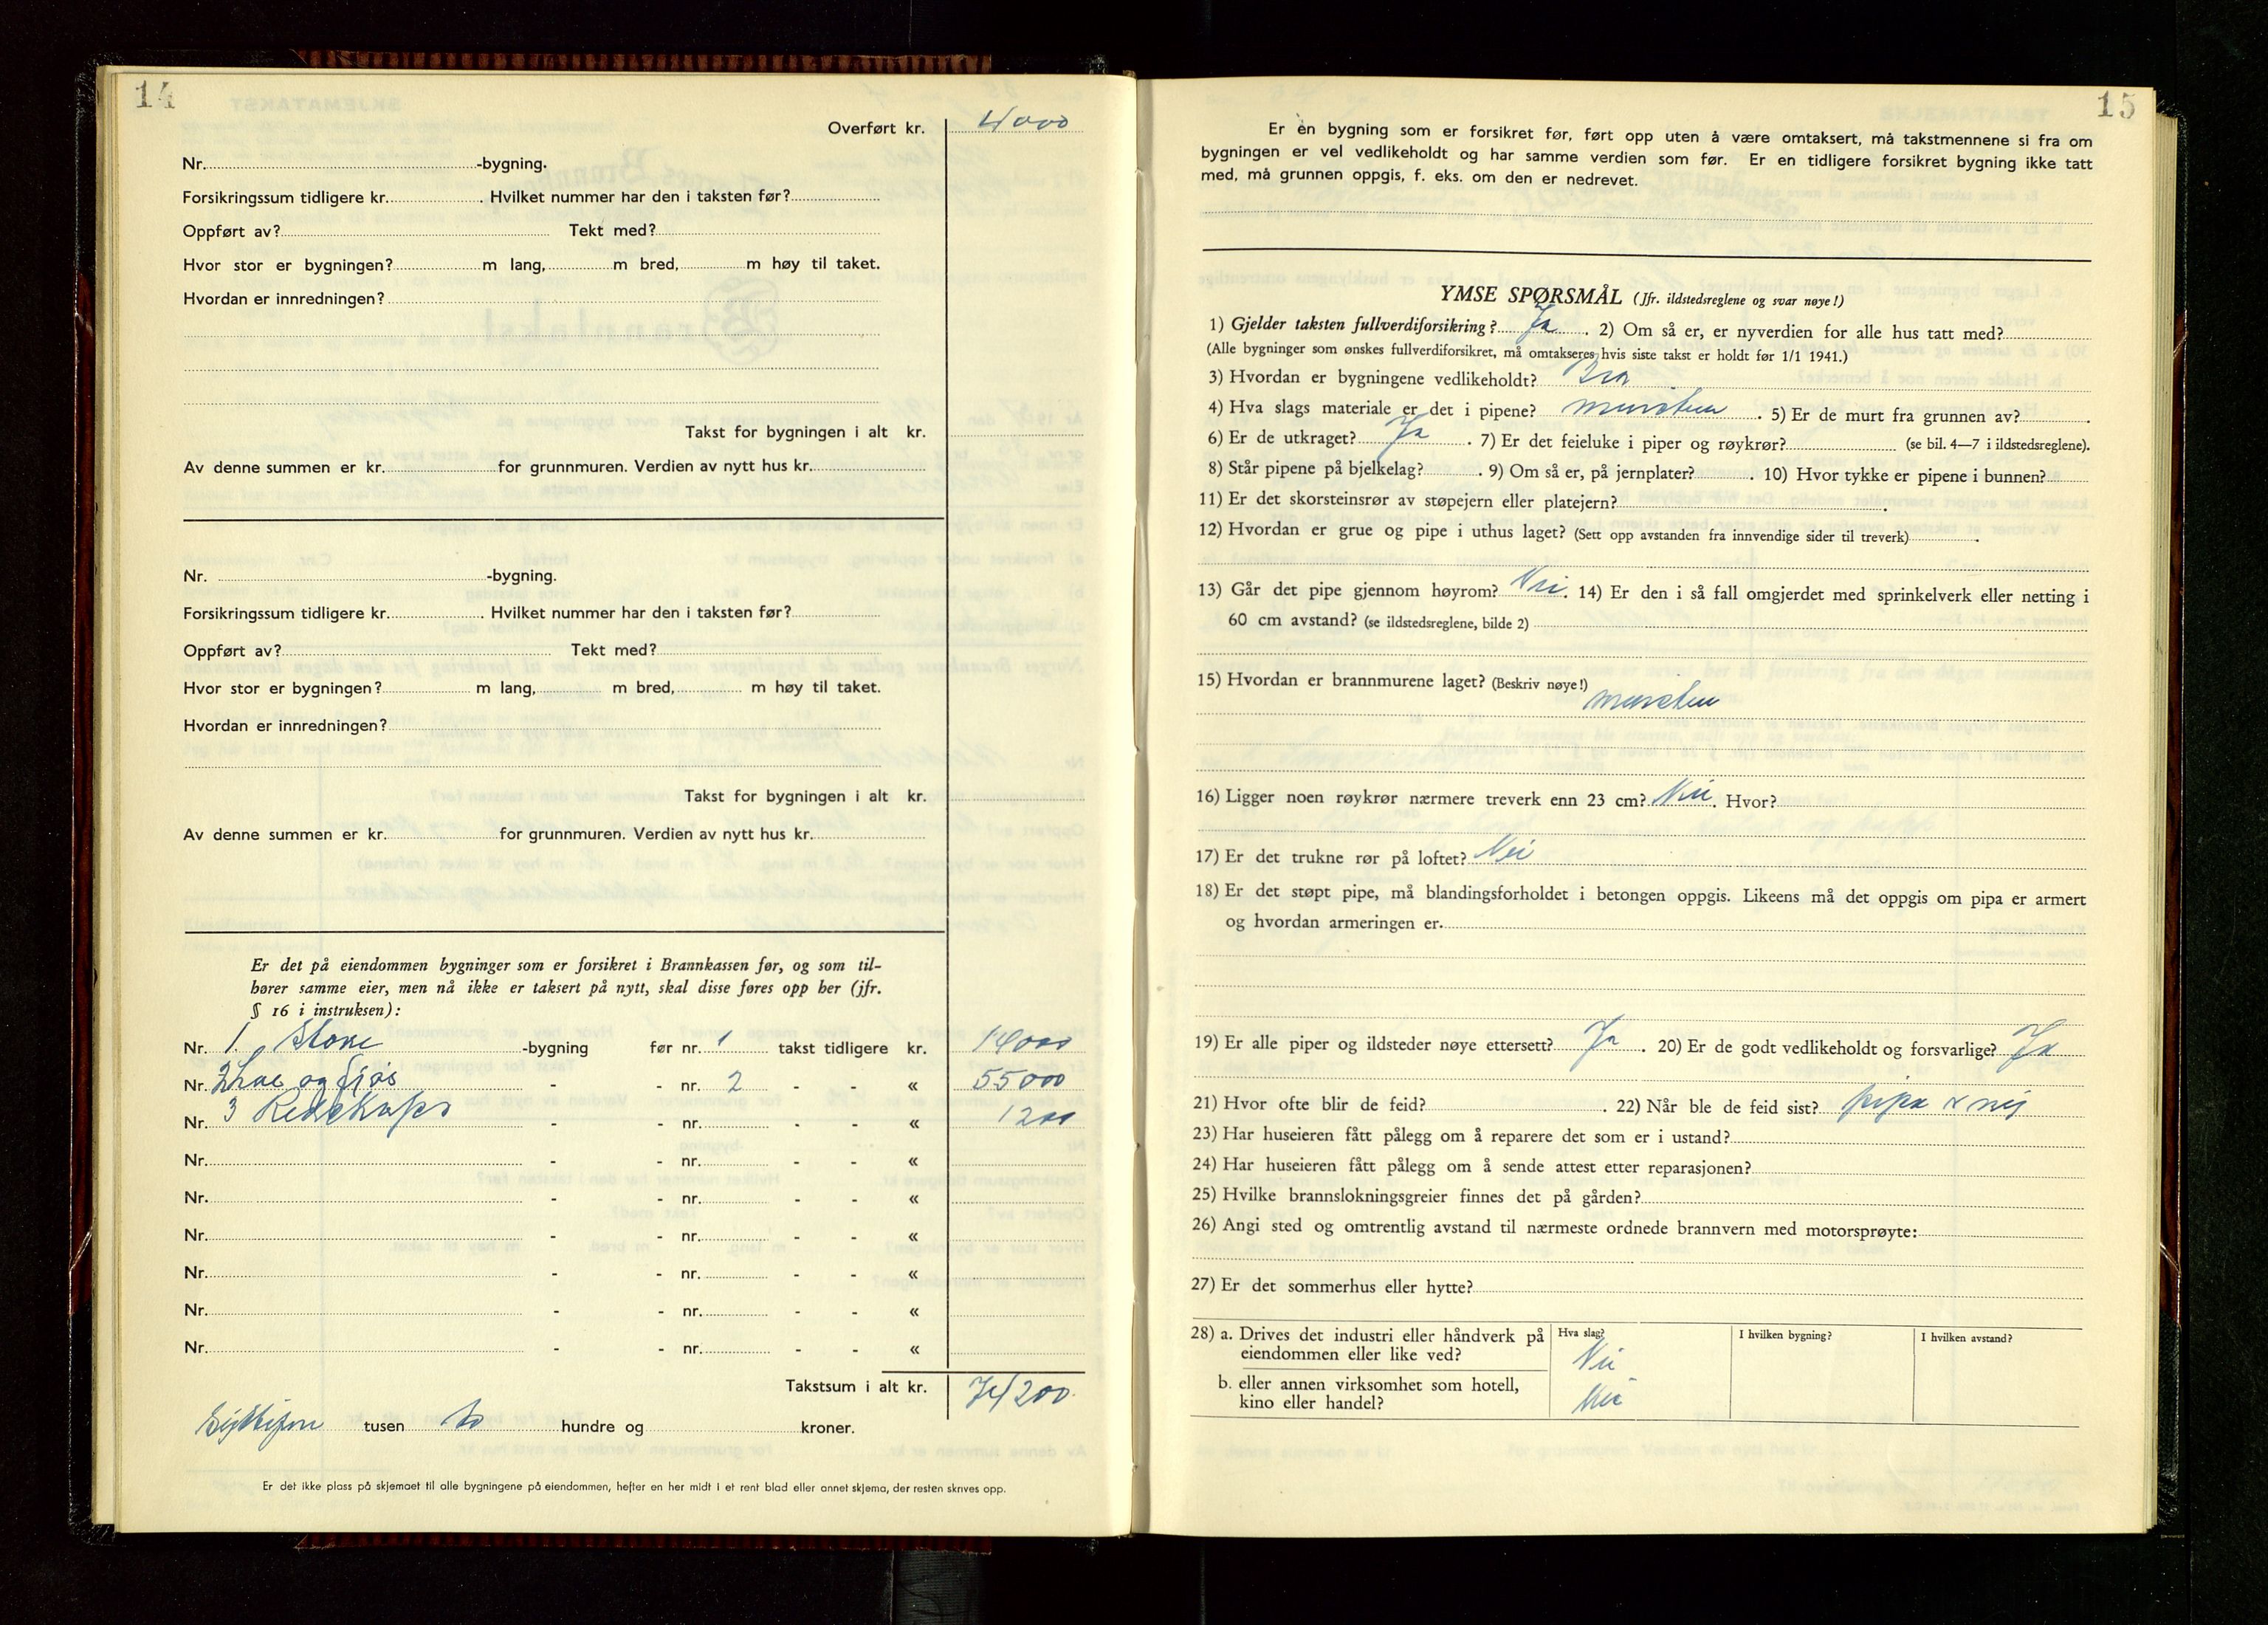 14
Overført kr. 4000
Nr. -bygning.
Forsikringssum tidligere kr. . Hvilket nummer har den i taksten før?
Oppført av? Tekt med?
Hvor stor er bygningen? m lang, m bred, m høy til taket.
Hvordan er innredningen?
Takst for bygningen i alt kr.
Av denne summen er kr. for grunnmuren. Verdien av nytt hus kr.
Nr. -bygning.
Forsikringssum tidligere kr. . Hvilket nummer har den i taksten før?
Oppført av? Tekt med?
Hvor stor er bygningen? m lang, m bred, m høy til taket.
Hvordan er innredningen?
Takst for bygningen i alt kr.
Av denne summen er kr. for grunnmuren. Verdien av nytt hus kr.
Er det på eiendommen bygninger som er forsikret i Brannkassen før, og som til-
hører samme eier, men nå ikke er taksert på nytt, skal disse føres opp her (jfr.
§ 16 i instruksen):
Nr. 1. Stove -bygning før nr. 1 takst tidligere kr. 14000
Nr. 2 Løe og fjøs - - nr. 2 - - « 55000
Nr. 3 Redskaps - - nr. - - « 1200
Nr. - - nr. - - «
Nr. - - nr. - - «
Nr. - - nr. - - «
Nr. - - nr. - - «
Nr. - - nr. - - «
Nr. - - nr. - - «
Takstsum i alt kr. 74200.
tusen to hundre og kroner.
Er det ikke plass på skjemaet til alle bygningene på eiendommen, hefter en her midt i et rent blad eller annet skjema, der resten skrives opp.
15
Er en bygning som er forsikret før, ført opp uten å være omtaksert, må takstmennene si fra om
bygningen er vel vedlikeholdt og har samme verdien som før. Er en tidligere forsikret bygning ikke tatt
med, må grunnen oppgis, f. eks. om den er nedrevet.
YMSE SPØRSMÅL (Jfr. ildstedsreglene og svar nøye!)
1) Gjelder taksten fullverdiforsikring? Ja . 2) Om så er, er nyverdien for alle hus tatt med?
(Alle bygninger som ønskes fullverdiforsikret, må omtakseres hvis siste takst er holdt før 1/1 1941.)
3) Hvordan er bygningene vedlikeholdt? Bra
4) Hva slags materiale er det i pipene? murstein . 5) Er de murt fra grunnen av? .
6) Er de utkraget? Ja . 7) Er det feieluke i piper og røykrør? (se bil. 4—7 i ildstedsreglene).
8) Står pipene på bjelkelag? . 9) Om så er, på jernplater? . 10) Hvor tykke er pipene i bunnen?
11) Er det skorsteinsrør av støpejern eller platejern? .
12) Hvordan er grue og pipe i uthus laget? (Sett opp avstanden fra innvendige sider til treverk) .
13) Går det pipe gjennom høyrom? Nei . 14) Er den i så fall omgjerdet med sprinkelverk eller netting i
60 cm avstand? (se ildstedsreglene, bilde 2)
15) Hvordan er brannmurene laget? (Beskriv nøye!)
murstein
16) Ligger noen røykrør nærmere treverk enn 23 cm? Nei . Hvor?
17) Er det trukne rør på loftet? Nei
18) Er det støpt pipe, må blandingsforholdet i betongen oppgis. Likeens må det oppgis om pipa er armert
og hvordan armeringen er.
19) Er alle piper og ildsteder nøye ettersett? Ja . 20) Er de godt vedlikeholdt og forsvarlige? Ja
21) Hvor ofte blir de feid? . 22) Når ble de feid sist? pipa
23) Har huseieren fått pålegg om å reparere det som er i ustand?
24) Har huseieren fått pålegg om å sende attest etter reparasjonen?
25) Hvilke brannslokningsgreier finnes det på gården?
26) Angi sted og omtrentlig avstand til nærmeste ordnede brannvern med motorsprøyte:
27) Er det sommerhus eller hytte?
28) a. Drives det industri eller håndverk på Hva slag? I hvilken bygning? I hvilken avstand?
eiendommen eller like ved? Nei
b. eller annen virksomhet som hotell,
kino eller handel? Nei